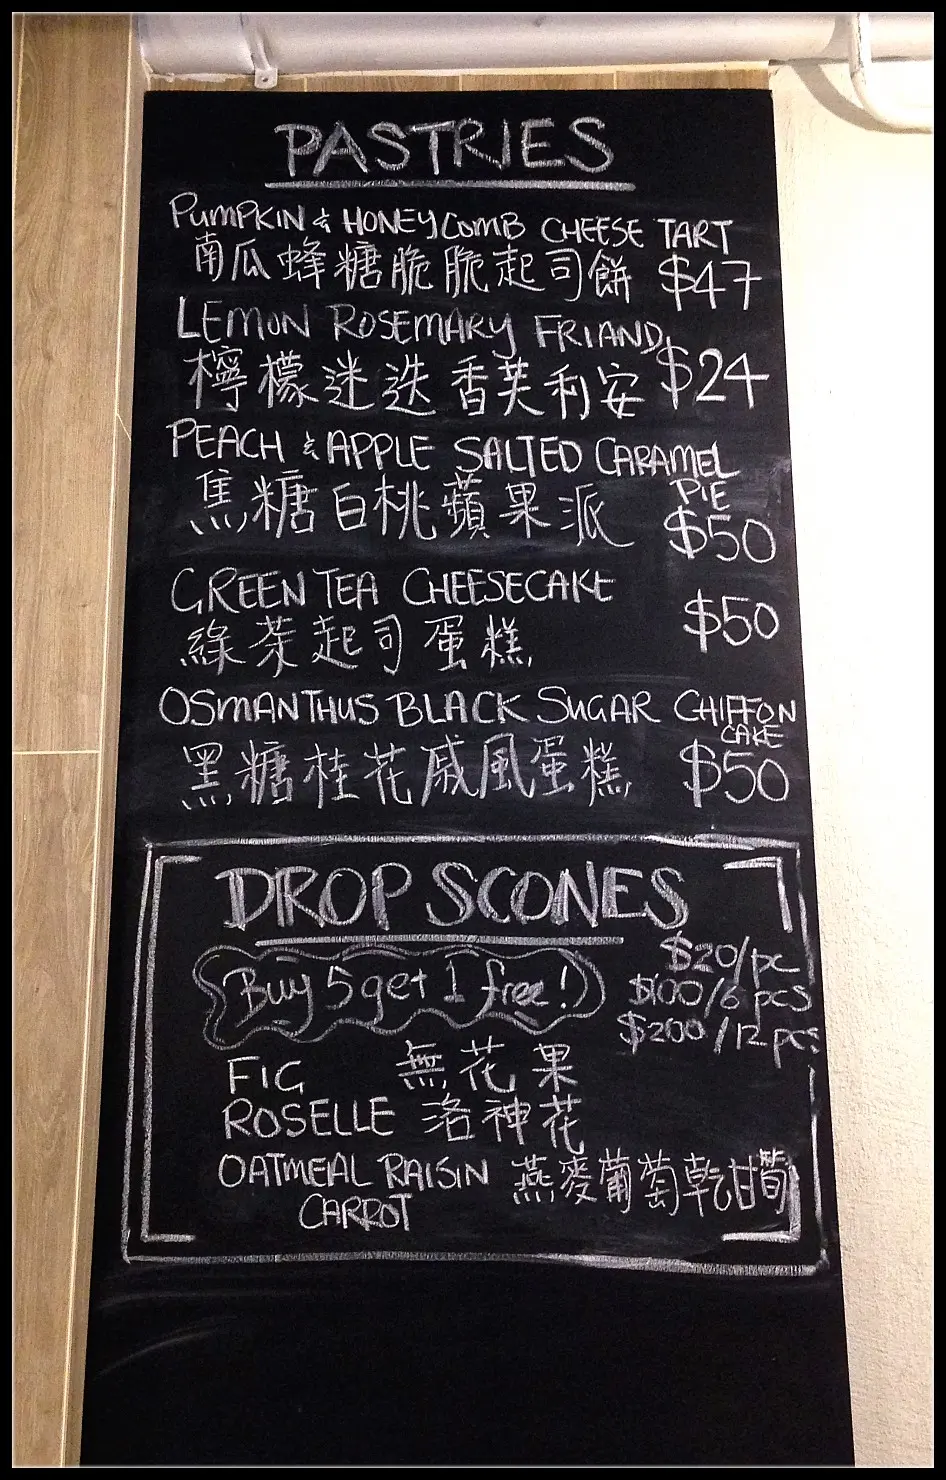 PASTRIES
PUMPKIN & HONEYCOMB CHEESE TART
南瓜蜂糖脆脆起司餅 $47
LEMON ROSEMARY FRIAND
檸檬迷迭香芙利安 $24
PEACH & APPLE SALTED CARAMEL
PIE
焦糖白桃蘋果派 $50
GREEN TEA CHEESECAKE
綠茶起司蛋糕 $50
OSMANTHUS BLACK SUGAR CHIFFON
CAKE
黑糖桂花戚風蛋糕 $50
DROP SCONES
Buy 5 get 1 free!
$20/pc
$100/6 pcs
$200/12 pcs
FIG 無花果
ROSELLE 洛神花
OATMEAL RAISIN 燕麥葡萄乾甘筍
CARROT